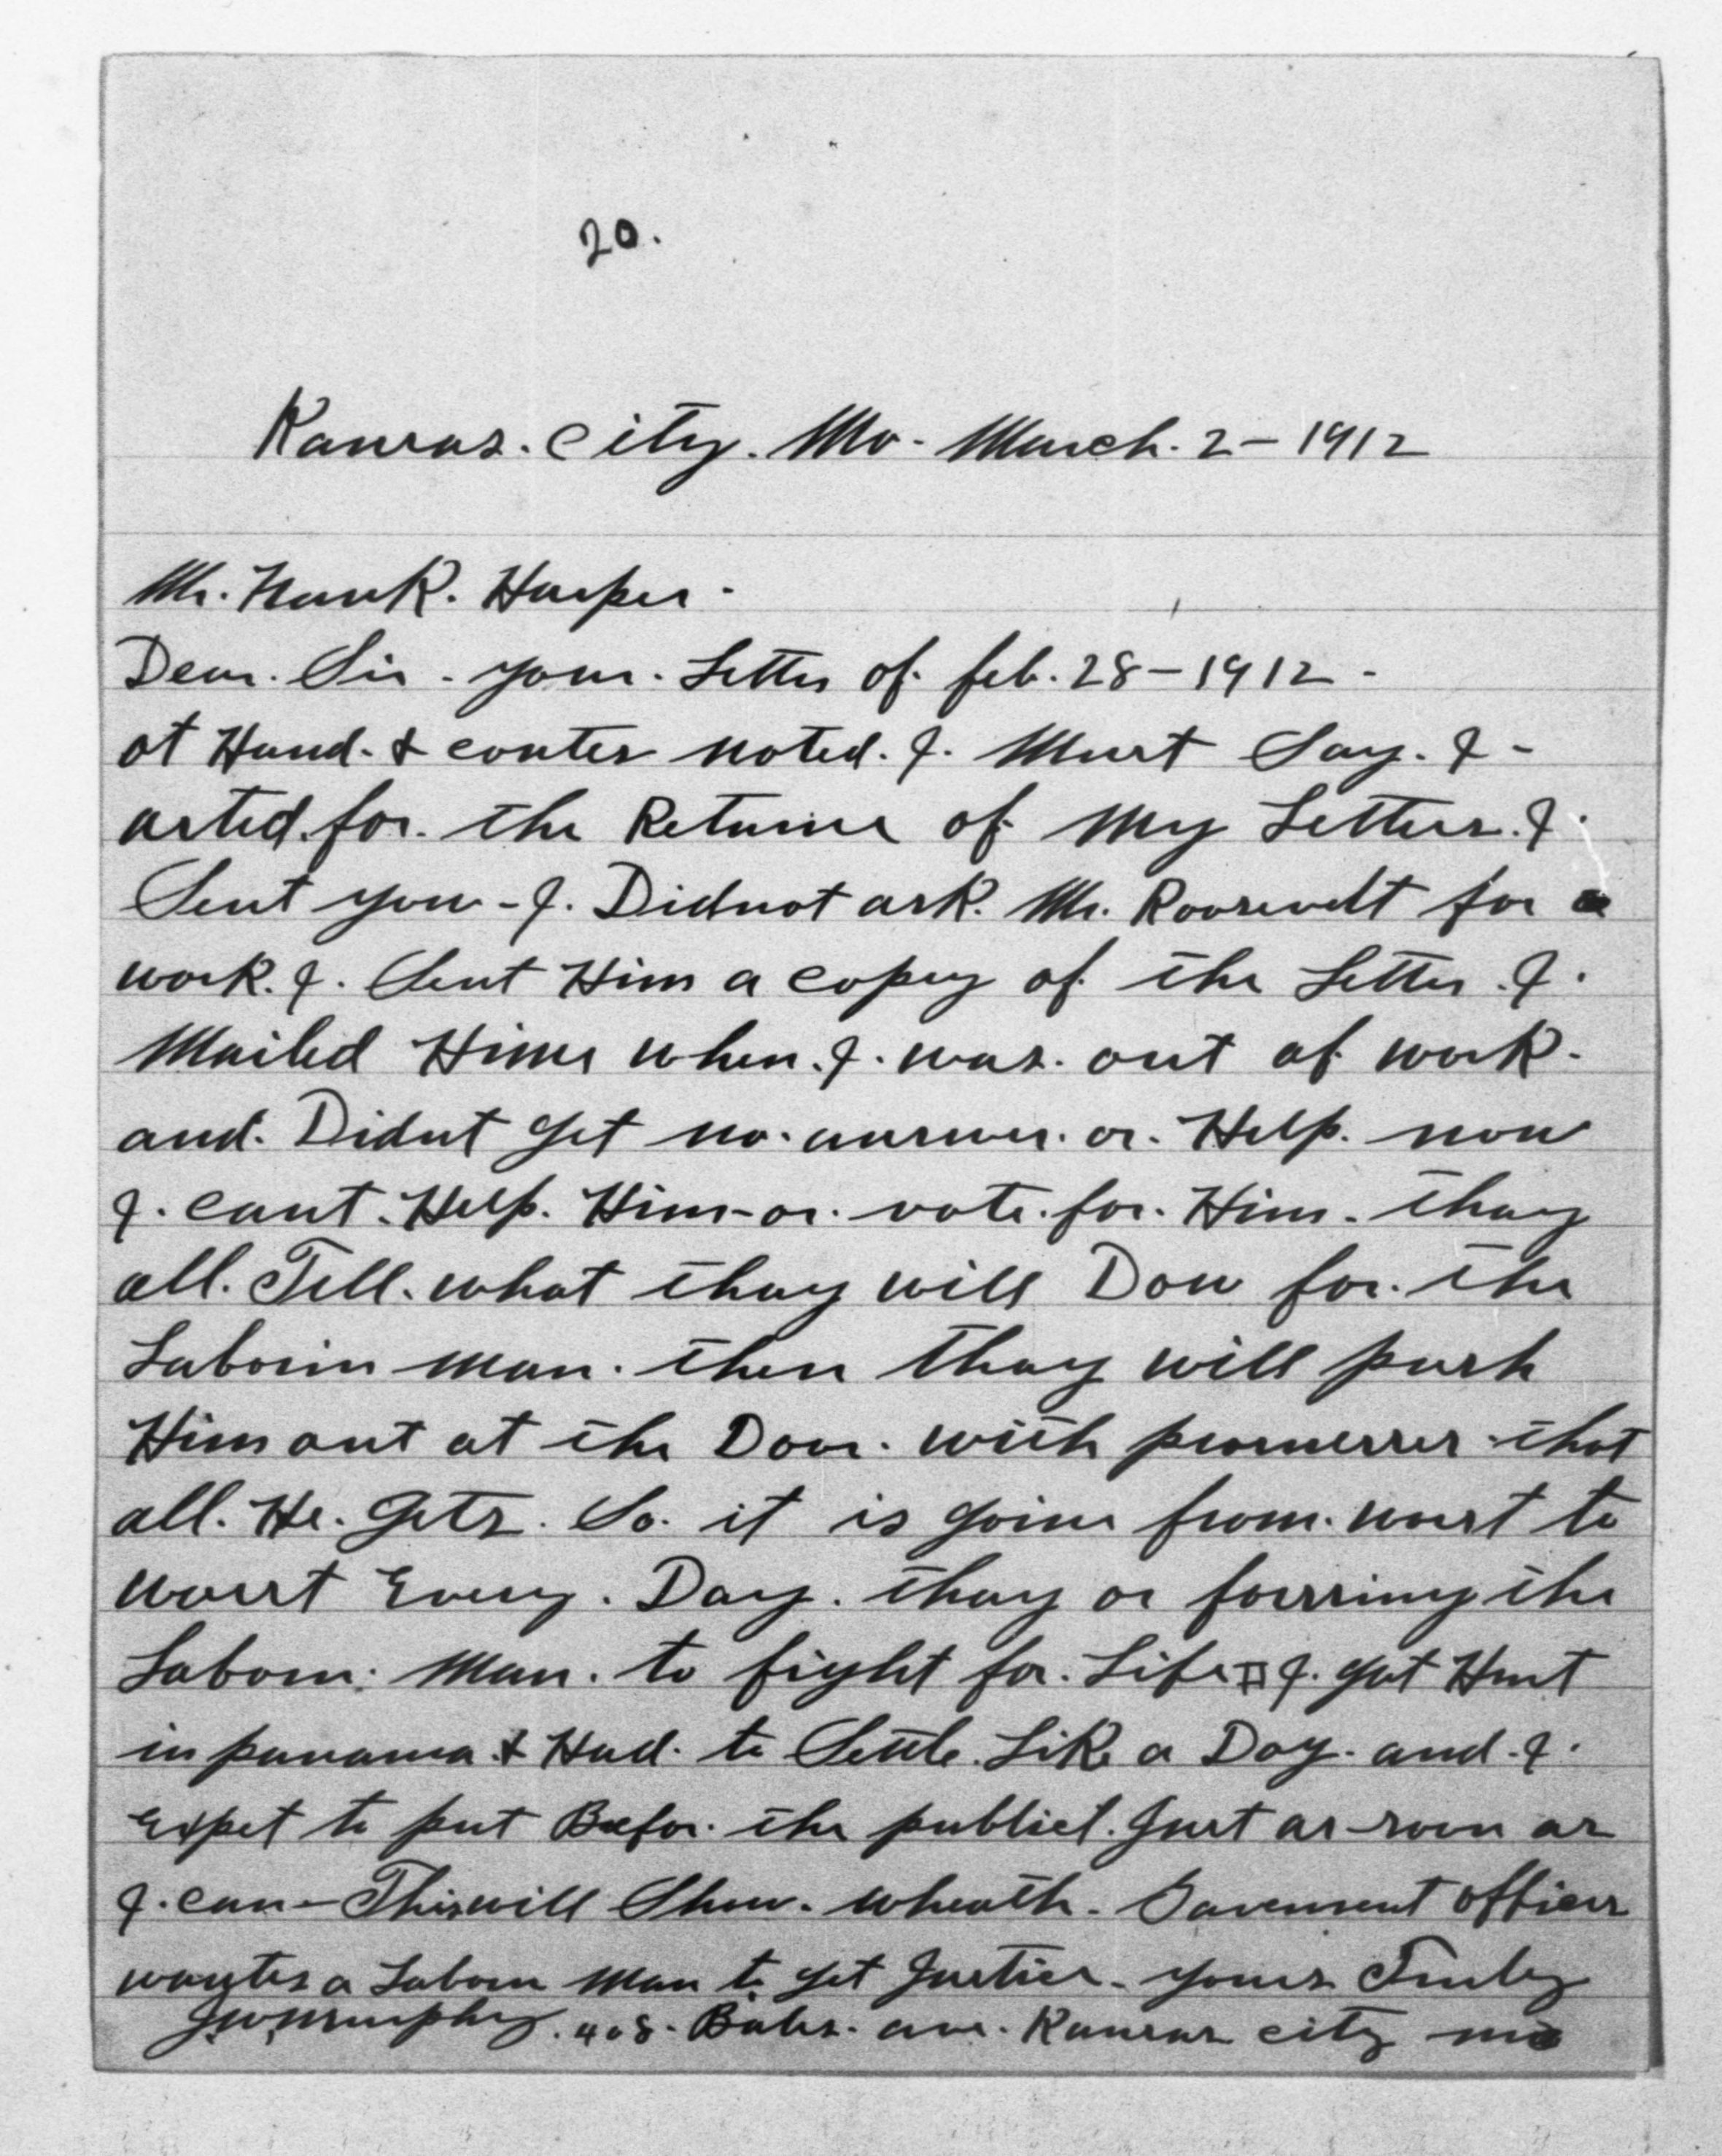 20.
Kansas. City. Mo - March. 2 - 1912
Mr. Frank. Harper -
Dear. Sir - your. Letter of. feb. 28 - 1912 -
at Hand. & contes noted. I. Must Say. I -
asted. for. the Returne of My Letters. I.
Sent you - I. Didnot ask. Mr. Roosevelt for
work. I. Sent Him a copey of the Letter. I.
Mailed Hime when. I. was. out of work.
and. Didnt get no. answer. or. Help. now
I. cant. Help. Him - or. vote. for. Him. thay
all. Tell. what thay will Dow for. the
Laborin man. then thay will push
Him out at the Door. with promesses that
all. He. Gets. So. it is goine from. worst to
worst Every. Day. thay or forssing the
Laborn. Man. to fight for. Life I. got Hurt
in panama. & Had. to Settle. Like a Dog. and. I.
Expet to put Befor. the publict. Just as soon as
I. can - This will Show. wheath. Goverment officers
wantes a Laborn Man to get Justice - yours Truley
JW Murphey. 408. Bales. ave. Kansas city mo